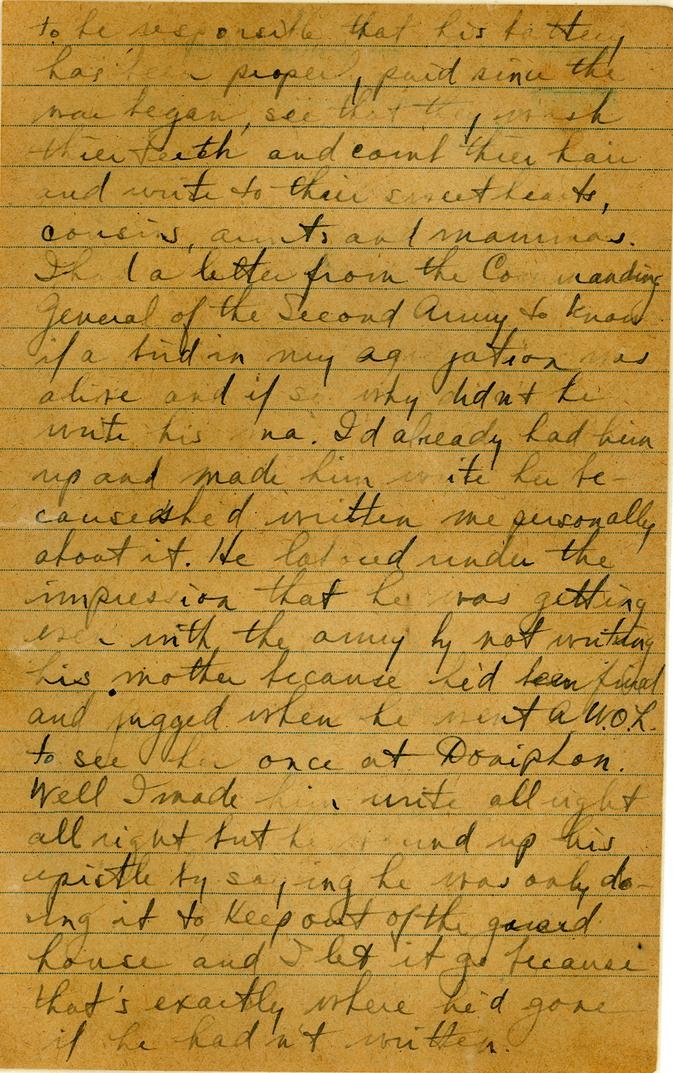 to be responsible that his battery
has been properly paid since the
war began, see that they wash
thier teeth and comb thier hair
and write to their sweethearts,
cousins, aunts and mammas.
I had a letter from the Commanding
General of the Second Army to know
if a bird in my agregation was
alive and if so why didn't he
write his ma. I'd already had him
up and made him write her be-
cause she'd written me personally
about it. He labored under the
impression that he was getting
even with the army by not writing
his mother because he'd been fined
and jugged when he went A.W.O.L.
to see her once at Doniphon.
Well I made him write all right
all right but he wound up his
epistle by saying he was only do-
ing it to keep out of the guard
house and I let it go because
that's exactly where he'd gone
if he hadn't written.